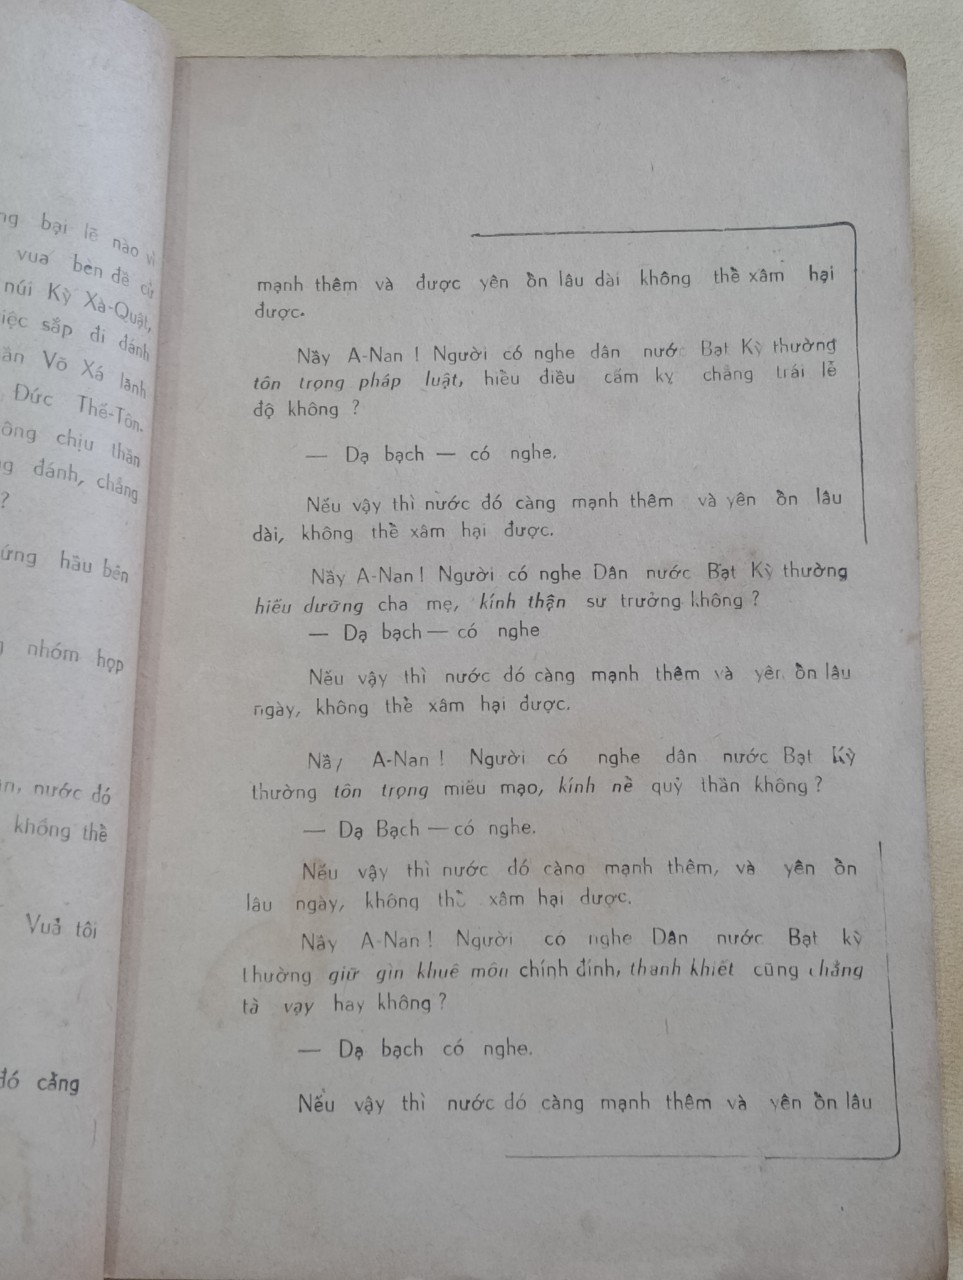 bại lẽ nào
vua bèn đề cử
núi Kỳ Xà-Quật,
sắp đi đánh
Võ Xá lãnh
Đức Thế-Tôn.
chịu thần
đánh, chẳng
?
hầu bên
nhóm họp
nước đó
không thề
Vuả tôi
đó cằng
mạnh thêm và được yên ồn lâu dài không thề xâm hại
được.
Nầy A-Nan ! Người có nghe dân nước Bạt Kỳ thường
tôn trọng pháp luật, hiều điều cấm kỵ chẳng trái lễ
độ không ?
— Dạ bạch — có nghe.
Nếu vậy thì nước đó càng mạnh thêm và yên ồn lâu
dài, không thề xâm hại được.
Nầy A-Nan ! Người có nghe Dân nước Bạt Kỳ thường
hiếu dưỡng cha mẹ, kính thận sư trưởng không ?
— Dạ bạch — có nghe
Nếu vậy thì nước dó càng mạnh thêm và yên ồn lâu
ngày, không thề xâm hại được.
Nầy A-Nan ! Người có nghe dân nước Bạt Kỳ
thường tôn trọng miếu mạo, kính nề quỷ thần không ?
— Dạ Bạch — có nghe.
Nếu vậy thì nước dó càng mạnh thêm, và yên ồn
lâu ngày, không thề xâm hại dược.
Nầy A-Nan ! Người có nghe Dân nước Bạt kỳ
thường giữ gìn khuê môn chính đính, thanh khiết cũng chẳng
tà vạy hay không ?
— Dạ bạch có nghe.
Nếu vậy thì nước dó càng mạnh thêm và yên ồn lâu